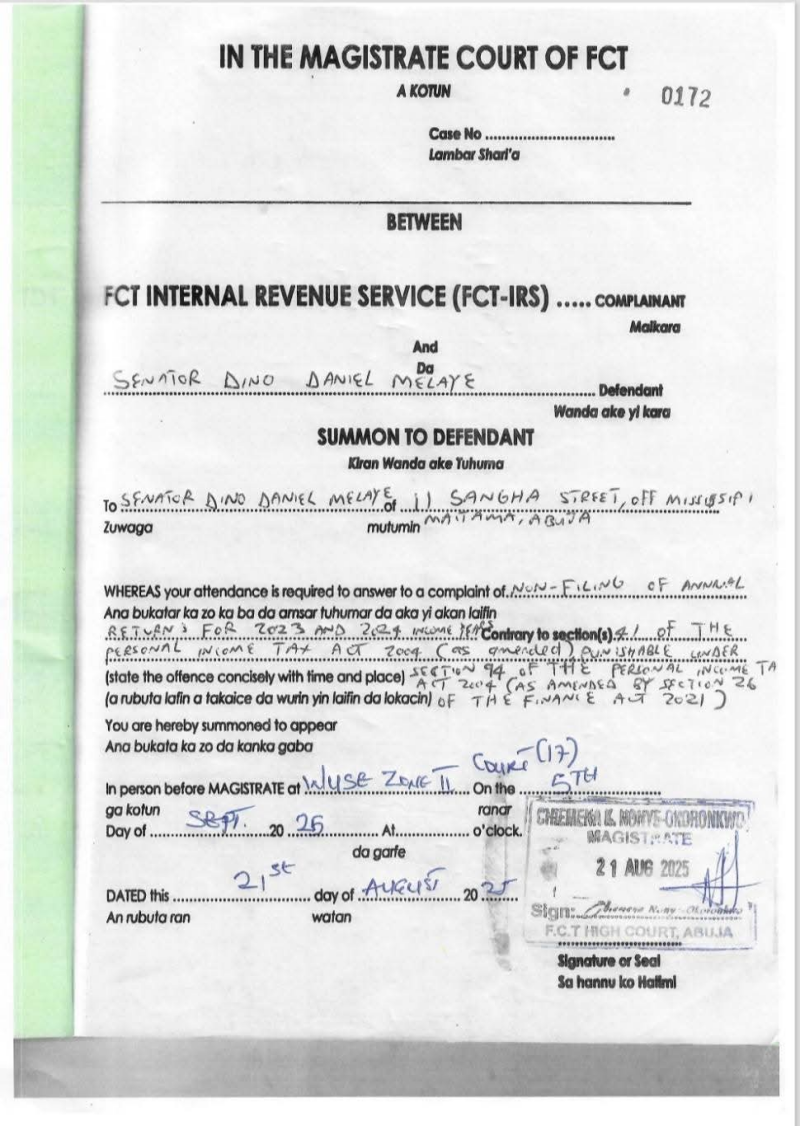 IN THE MAGISTRATE COURT OF FCT
A KOTUN
0172
Case No ..............................
Lambar Shari'a
BETWEEN
FCT INTERNAL REVENUE SERVICE (FCT-IRS) ..... COMPLAINANT
Maikara
And
Da
SENATOR DINO DANIEL MELAYE Defendant
Wanda ake yi kara
SUMMON TO DEFENDANT
Kiran Wanda ake Tuhuma
To SENATOR DINO DANIEL MELAYE of 11 SANGHA STREET, OFF MISSISSIPI
Zuwaga mutumin MAITAMA, ABUJA
WHEREAS your attendance is required to answer to a complaint of NON-FILING OF ANNUAL
Ana bukatar ka zo ka ba da amsar tuhumar da aka yi akan laifin
RETURNS FOR 2023 AND 2024 INCOME YEARS Contrary to section(s) 41 OF THE
PERSONAL INCOME TAX ACT 2004 (as amended) PUNISHABLE UNDER
(state the offence concisely with time and place) SECTION 94 OF THE PERSONAL INCOME TA
ACT 2004 (AS AMENDED BY SECTION 26
(a rubuta lafin a takaice da wurin yin laifin da lokacin) OF THE FINANCE ACT 2021)
You are hereby summoned to appear
Ana bukata ka zo da kanka gaba
In person before MAGISTRATE at WUSE ZONE II COURT (17) On the 5TH
ga kotun ranar
Day of SEPT. 20 25 At ............ o'clock.
da garfe
DATED this 21st day of AUGUST 20 25
An rubuta ran watan
MAGISTRATE
21 AUG 2025
Sign:
F.C.T HIGH COURT, ABUJA
Signature or Seal
Sa hannu ko Hatimi